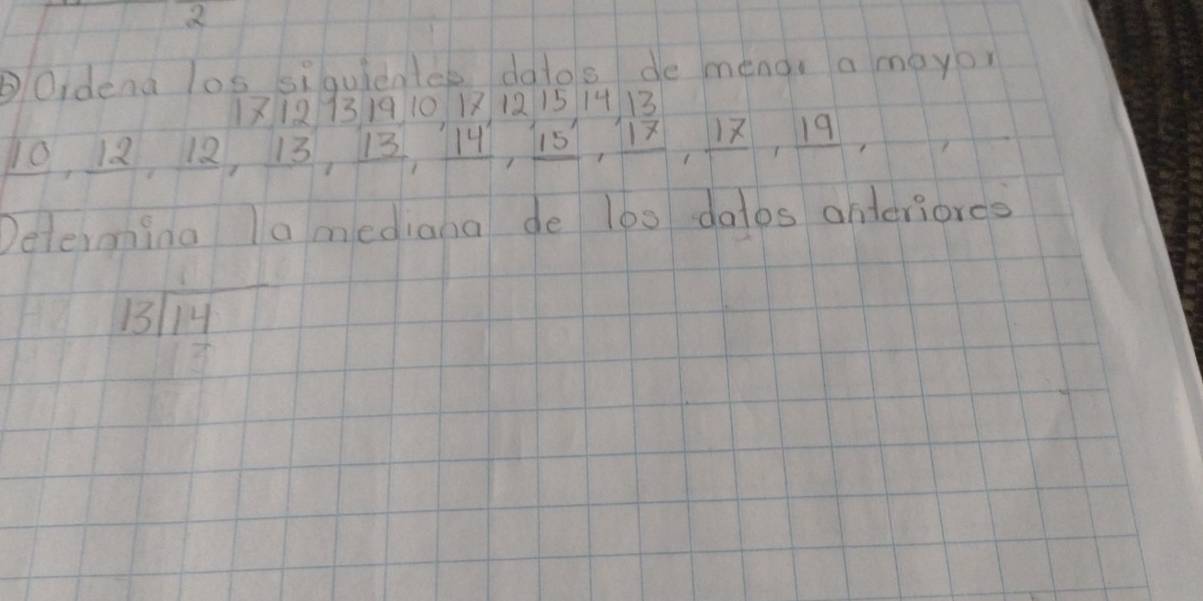 2
b) Ordena los siguientes datos de menor a mayor
17 12 13 19 10, 17, 12, 15, 14, 13
10, 12, 12, 13, 13, 14, 15, 17, 17, 19, ,
Determina la mediana de los datos anteriores
1
13 14